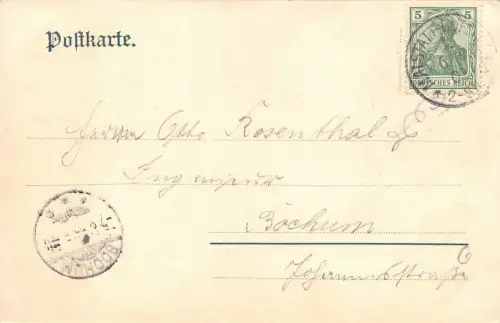 Postkarte.
5 5
DEUTSCHES REICH
Herrn Otto Rosenthal
Ingenieur
Bochum
6
Johannisstraße
BOCHUM